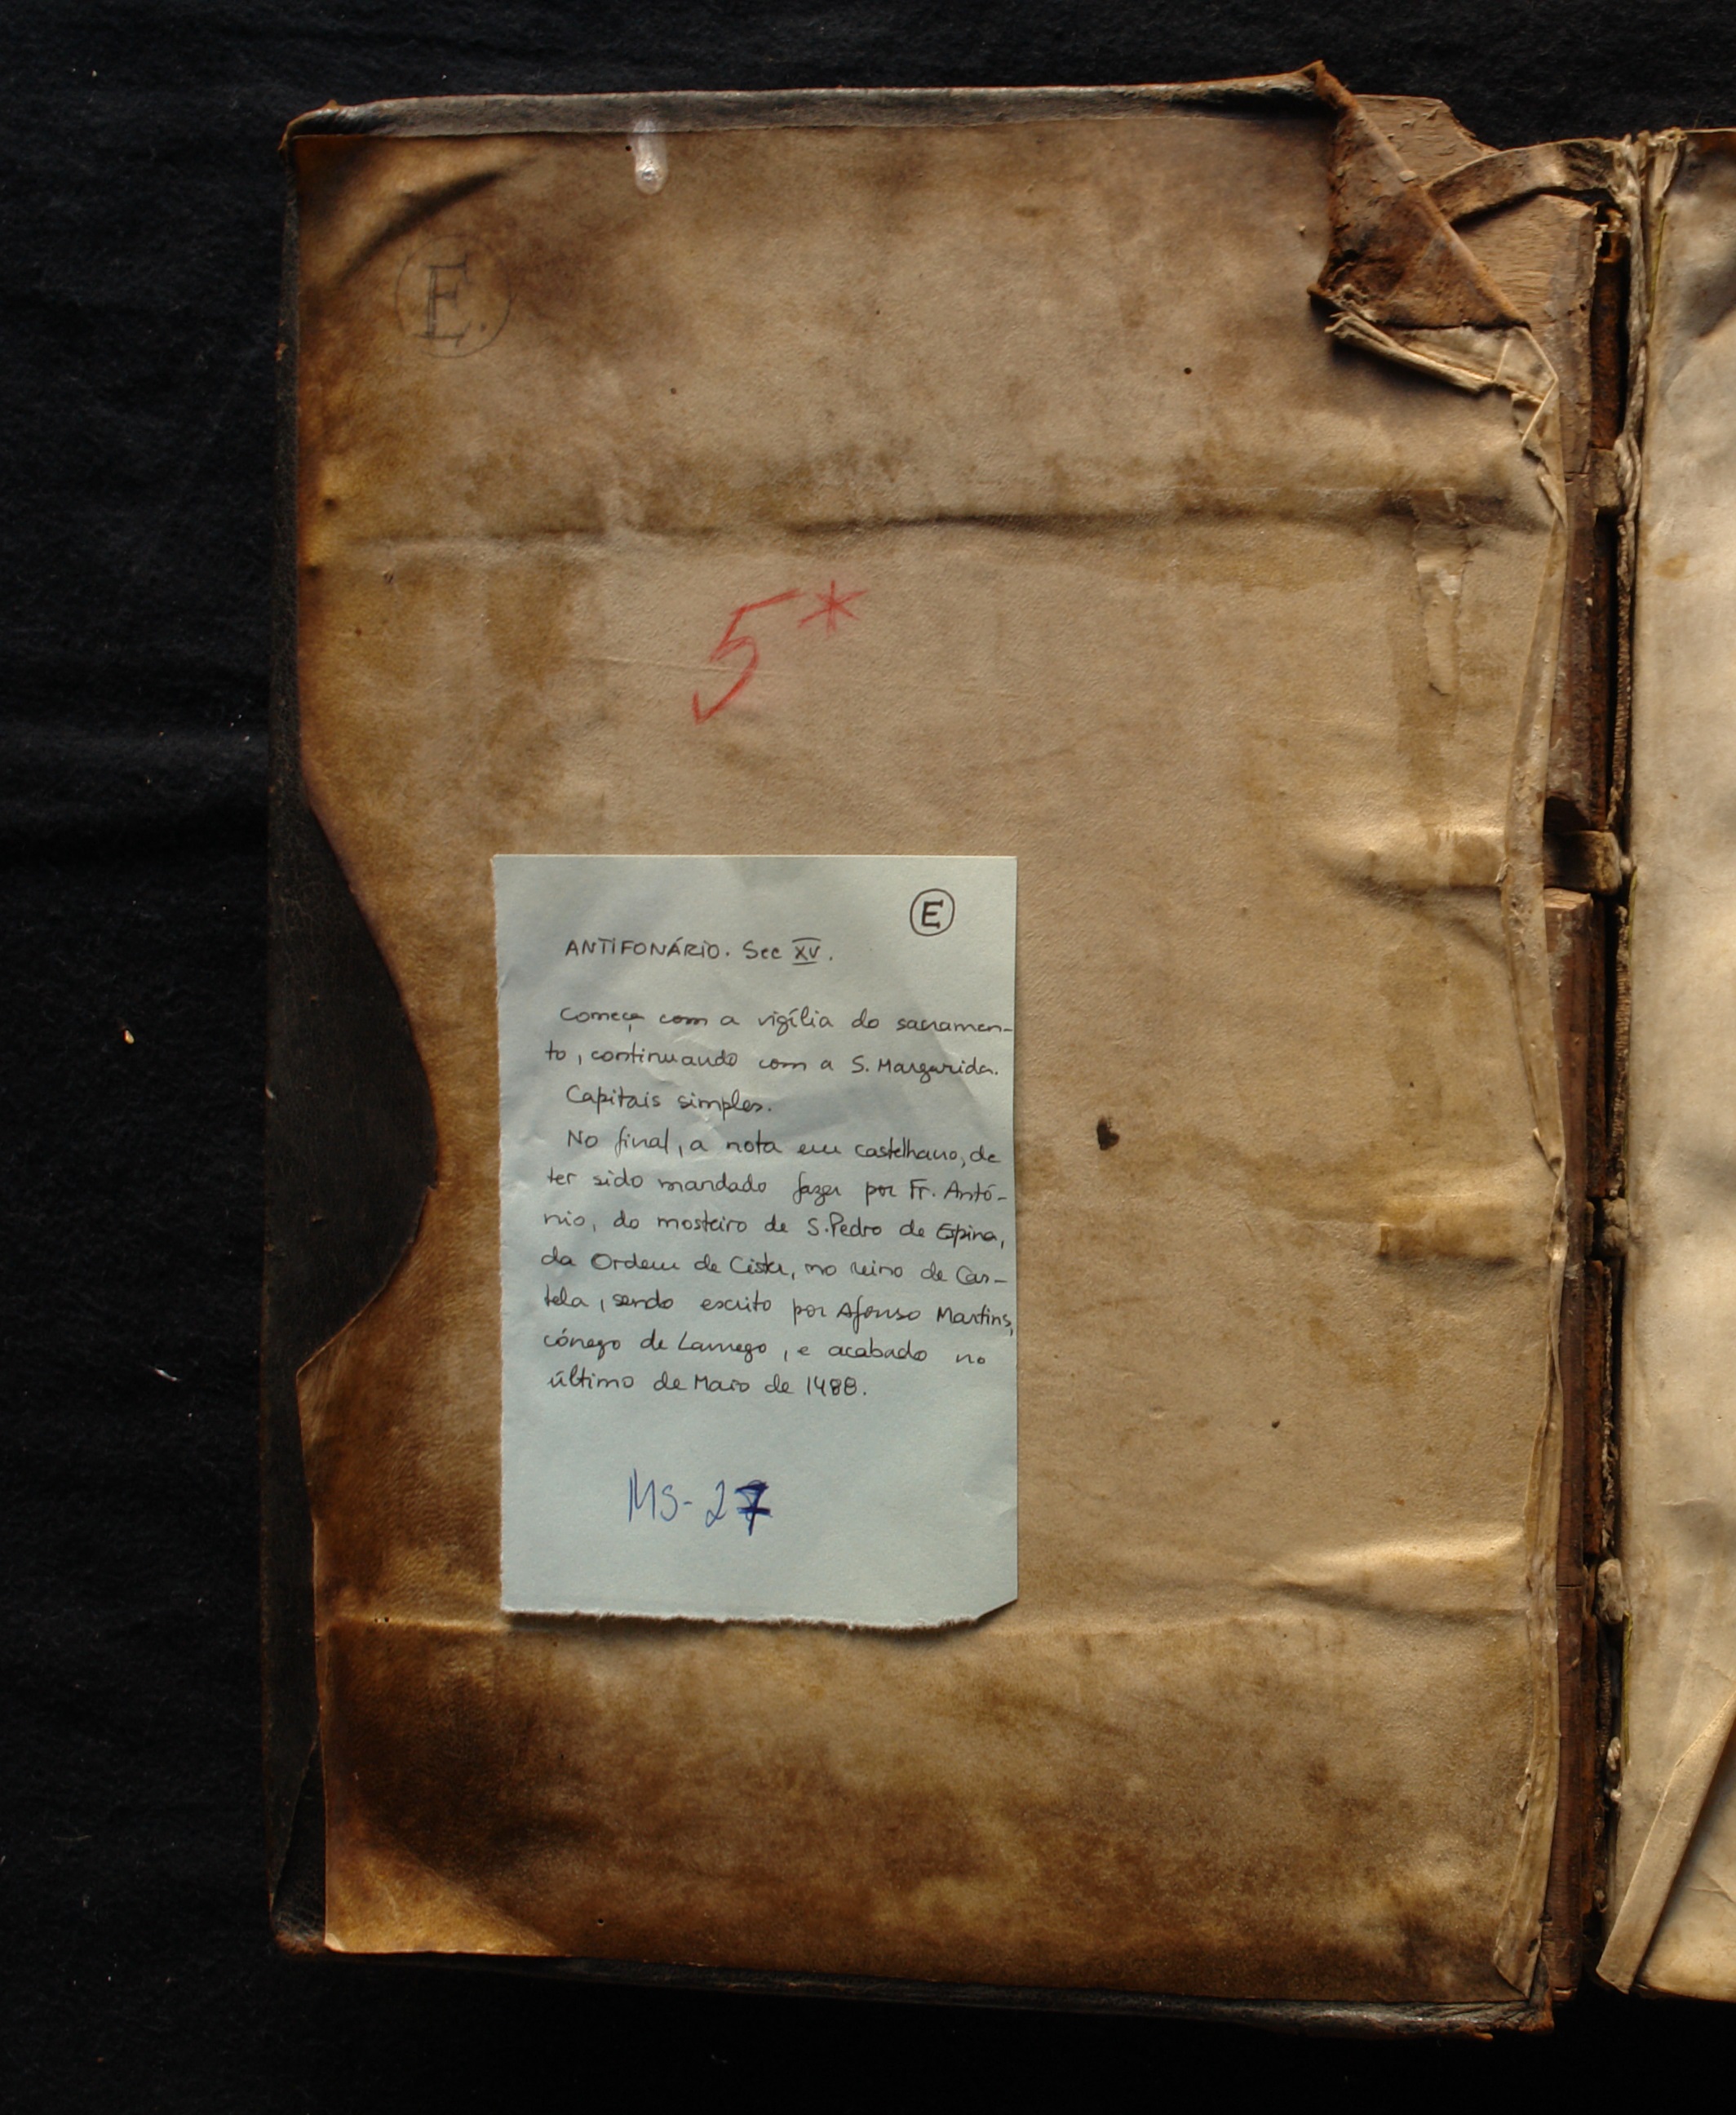 E.
5*
E
ANTIFONÁRIO. Sec XV.
Começa com a vigília do sacramen-
to, continuando com a S. Margarida.
Capitais simples.
No final, a nota em castelhano, de
ter sido mandado fazer por Fr. Antó-
nio, do mosteiro de S. Pedro de Espina,
da Ordem de Cister, no reino de Cas-
tela, sendo escrito por Afonso Martins,
cónego de Lamego, e acabado no
último de Maio de 1488.
MS-27